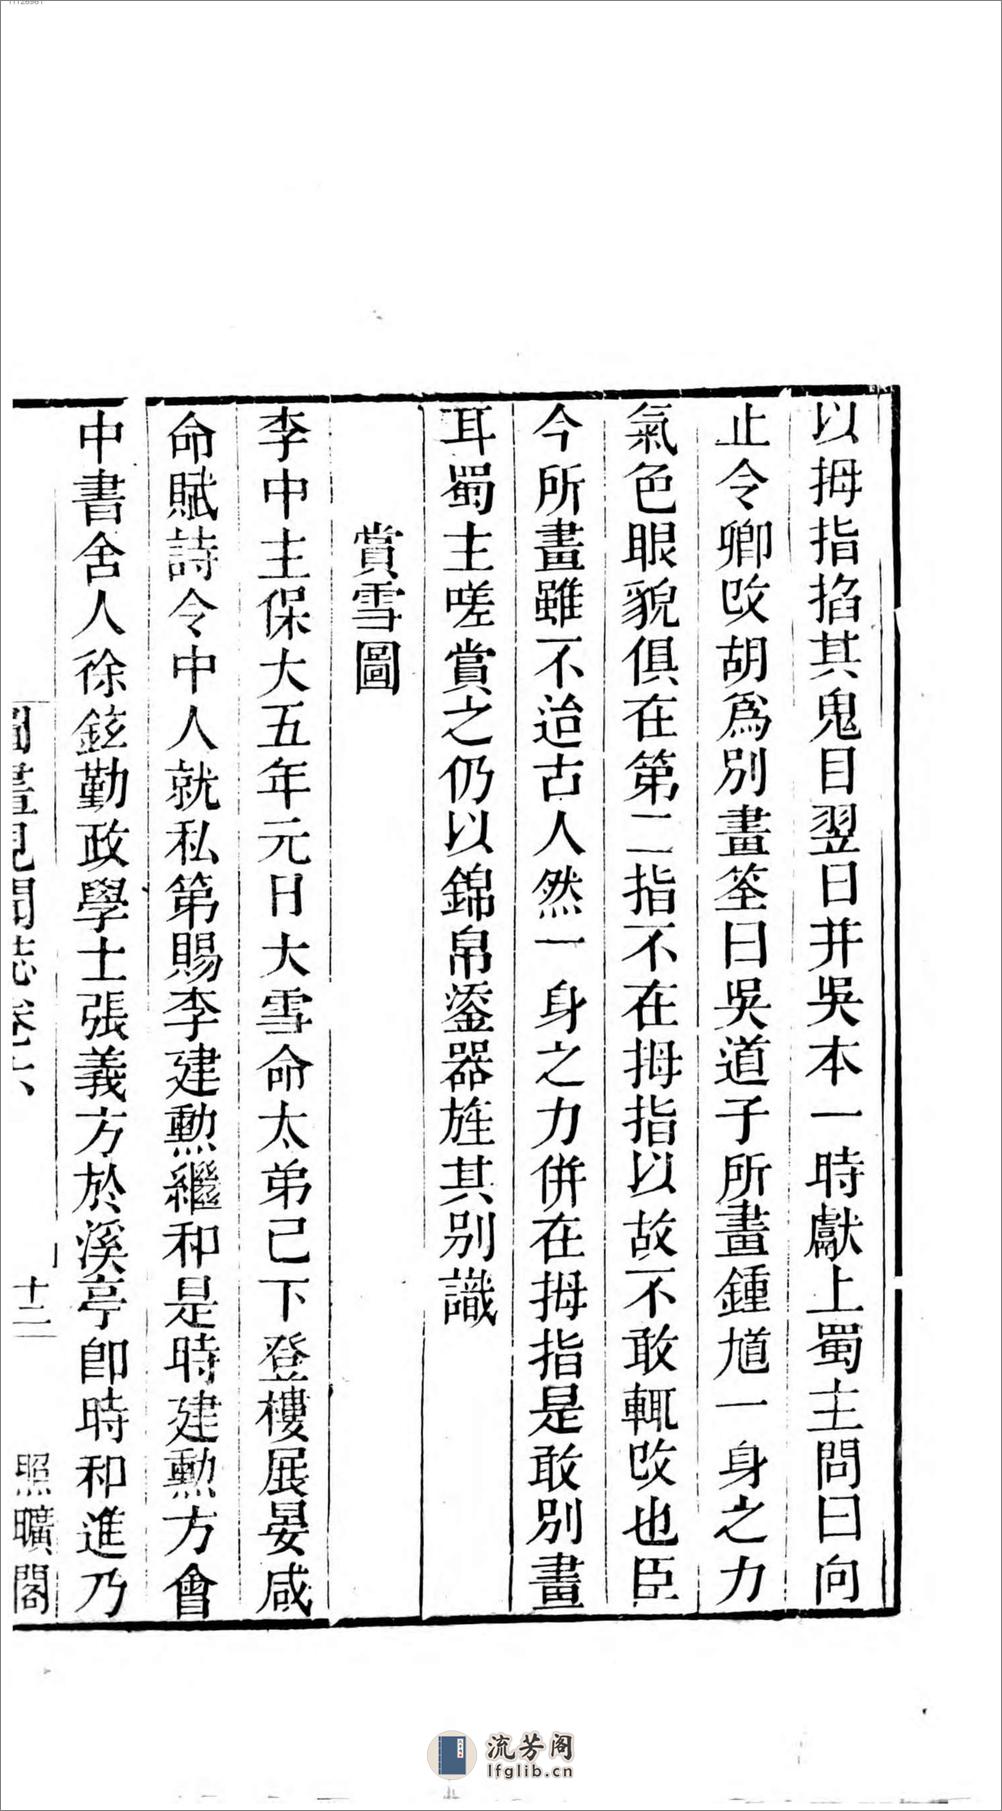 以拇指掐其鬼目翌日并吳本一時獻上蜀主問曰向
止令卿改胡爲別畫筌曰吳道子所畫鍾馗一身之力
氣色眼貌俱在第二指不在拇指以故不敢輒改也臣
今所畫雖不迨古人然一身之力併在拇指是敢別畫
耳蜀主嗟賞之仍以錦帛鋈器旌其別識
賞雪圖
李中主保大五年元日大雪命太弟已下登樓展晏咸
命賦詩令中人就私第賜李建勲繼和是時建勲方會
中書舍人徐鉉勤政學士張義方於溪亭卽時和進乃
圖畫見聞誌卷六
十二
照曠閣
流芳阁
lfglib.cn
11126981